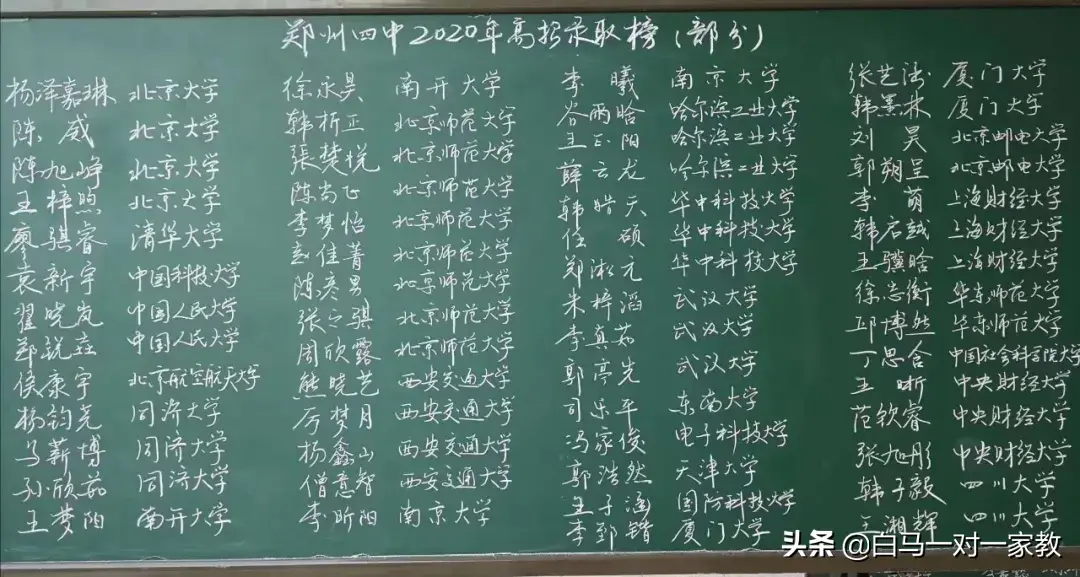 郑州四中2020年高招录取榜(部分)
杨泽嘉琳 北京大学
陈威 北京大学
陈旭峥 北京大学
王梓煦 北京大学
廖骐睿 清华大学
袁新宇 中国科技大学
翟晓岚 中国人民大学
郑锐 中国人民大学
侯康宇 北京航空航天大学
杨钧尧 同济大学
马薪博 同济大学
孙欣茹 同济大学
王梦阳 南开大学
徐永昊 南开大学
韩析正 北京师范大学
張楚悦 北京师范大学
陈尚正 北京师范大学
李梦怡 北京师范大学
佳菁 北京师范大学
陈彦男 北京师范大学
张之骐 北京师范大学
周欣露 北京师范大学
熊晓艺 西安交通大学
厉梦月 西安交通大学
杨鑫山 西安交通大学
僧意智 西安交通大学
李昕阳 南京大学
李曦 南京大学
谷雨晗 哈尔滨工业大学
王正阳 哈尔滨工业大学
薛云龙 哈尔滨工业大学
韩皓天 华中科技大学
任硕 华中科技大学
郑淞元 华中科技大学
朱梓滔 武汉大学
李真茹 武汉大学
郭亭先 武汉大学
司乐平 东南大学
冯家俊 电子科技大学
郭浩然 天津大学
王子涵 国防科技大学
李郅锴 厦门大学
张艺 厦门大学
韩林 厦门大学
刘昊 北京邮电大学
郭朔呈 北京邮电大学
李萌 上海财经大学
韩启越 上海财经大学
王骥晗 上海财经大学
徐志衡 华东师范大学
邱博然 华东师范大学
丁思含 中国社会科学院大学
王昕 中央财经大学
范钦睿 中央财经大学
张旭彤 中央财经大学
韩子毅 四川大学
王湘辉 四川大学
头条 @白马一对一家教